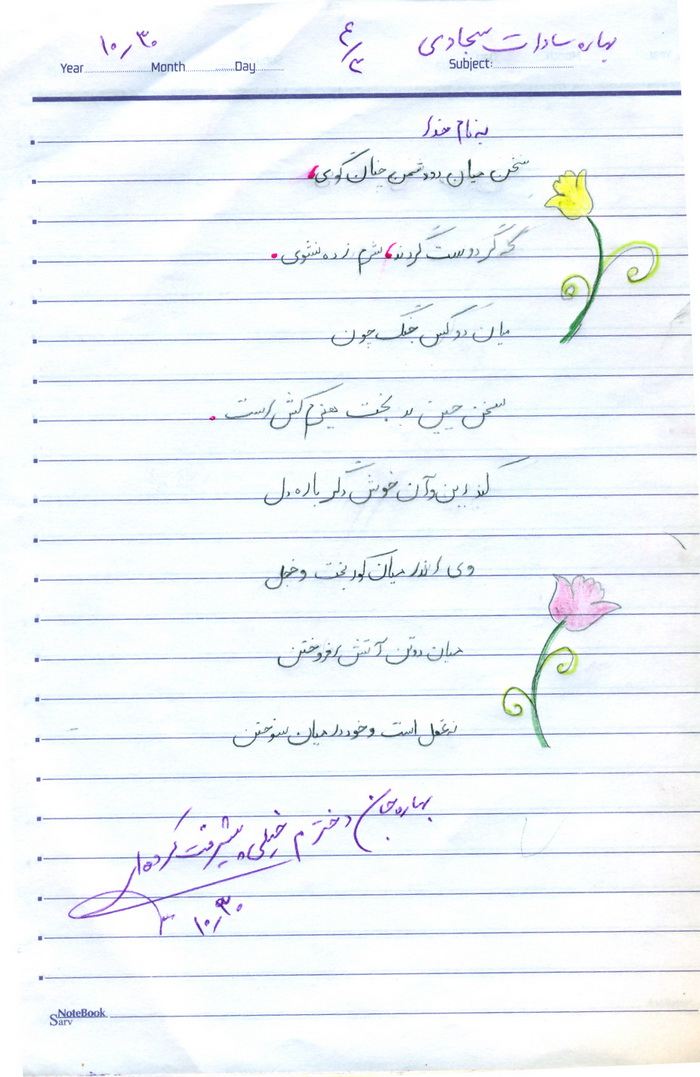 بهاره سادات سجادی
۴/۳
۱۰/۳۰
Year Month Day
Subject:
به نام خدا
سخن میان دو دشمن چنان گوی،
که گر دوست گردند، شرم زده نشوی.
میان دو کس جنگ چون
سخن چین بد بخت هیزم کش است.
کند این و آن خوش دگر باره دل
وی اندر میان کور بخت و خجل
میان دو تن آتش افروختن
نه عقل است و خود در میان سوختن
بهاره جان دخترم خیلی پیشرفت کرده‌ای
۱۰/۳۰
NoteBook
Sarv